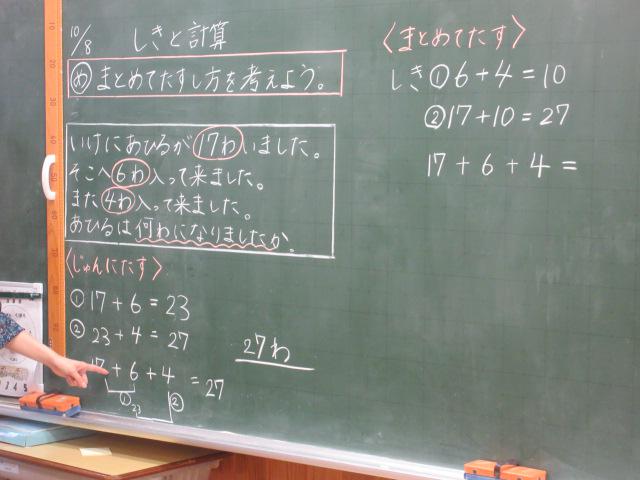 10/8 しきと計算
め まとめてたすし方を考えよう。
いけにあひるが17わいました。
そこへ6わ入って来ました。
また4わ入って来ました。
あひるは何わになりましたか。
〈じゅんにたす〉
① 17+6=23
② 23+4=27
17+6+4=27
① ②
23
27わ
〈まとめてたす〉
しき①6+4=10
②17+10=27
17+6+4=